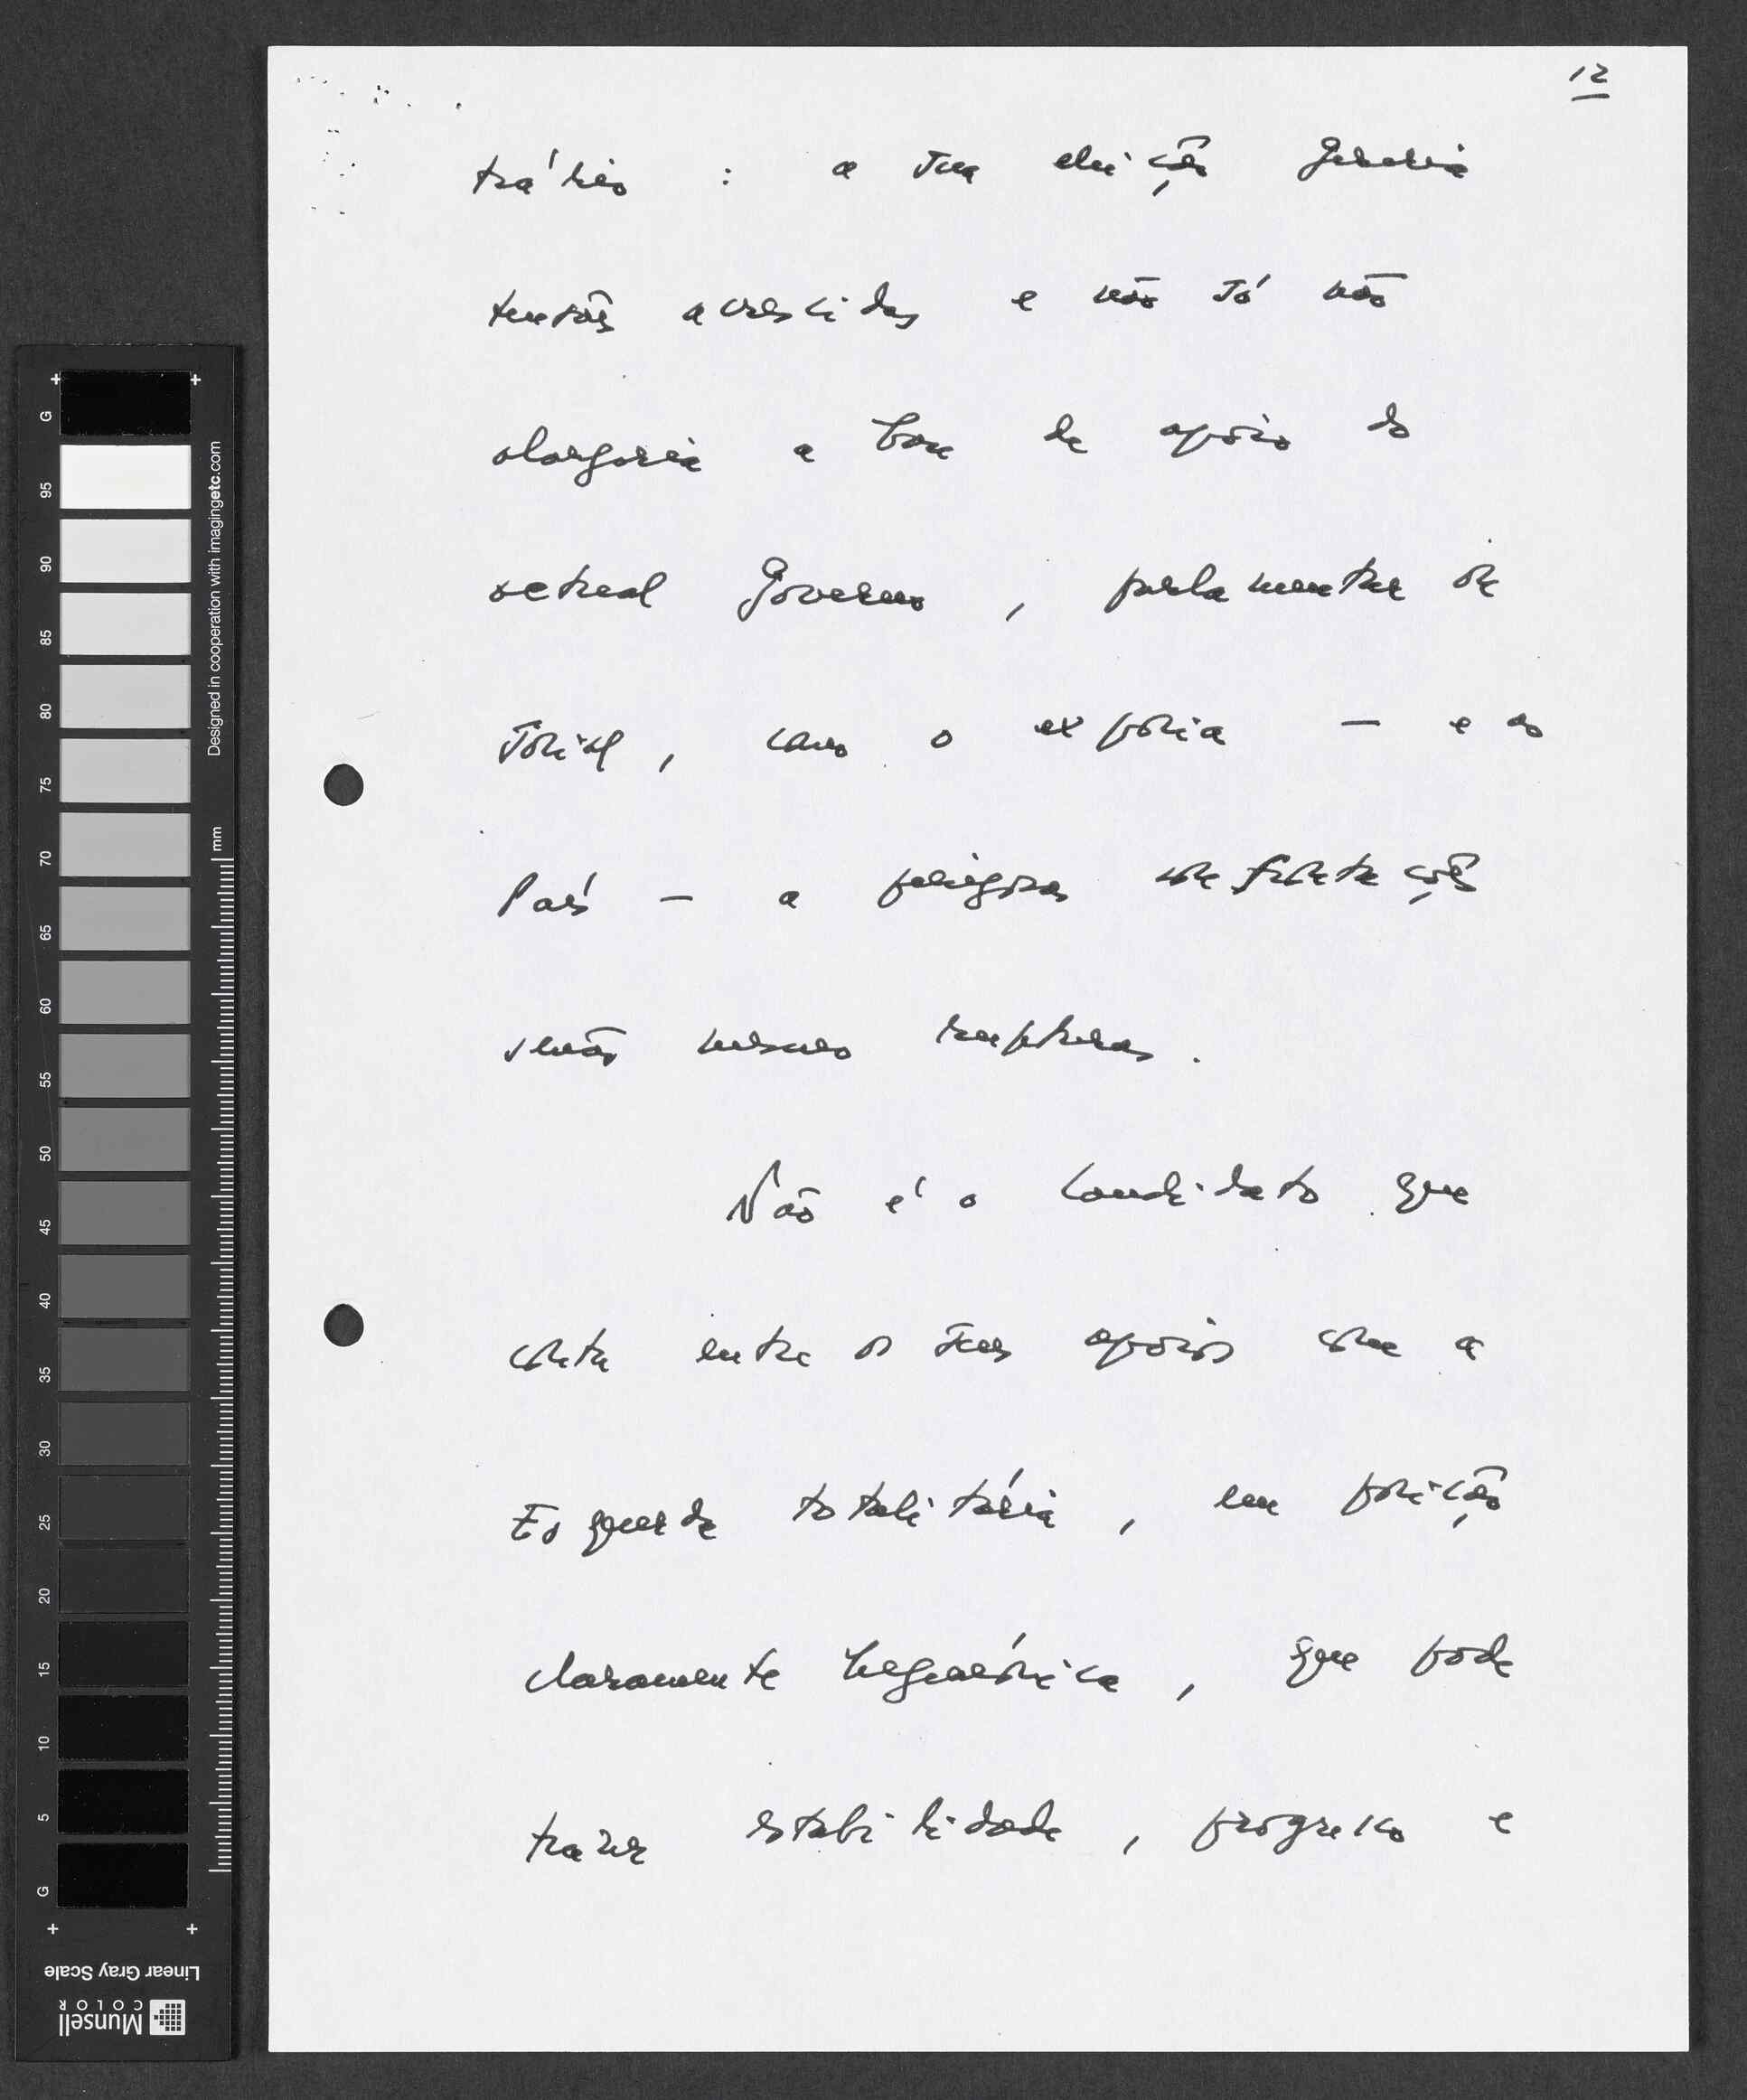 12
trário : a sua eleição geraria
tensões acrescidas e não só não
alargaria a base de apoio do
actual Governo, parlamentar ou
social, como o exporia — e ao
País — a perigosas confrontações
senão mesmo rupturas.
Não é o candidato que
conta entre os seus apoios com a
Esquerda totalitária, em posição
claramente hegemónica, que pode
trazer estabilidade, progresso e
G
95
90
85
80
75
70
65
60
55
50
45
40
35
30
25
20
15
10
5
G
Designed in cooperation with imagingetc.com
mm
Linear Gray Scale
Munsell
COLOR